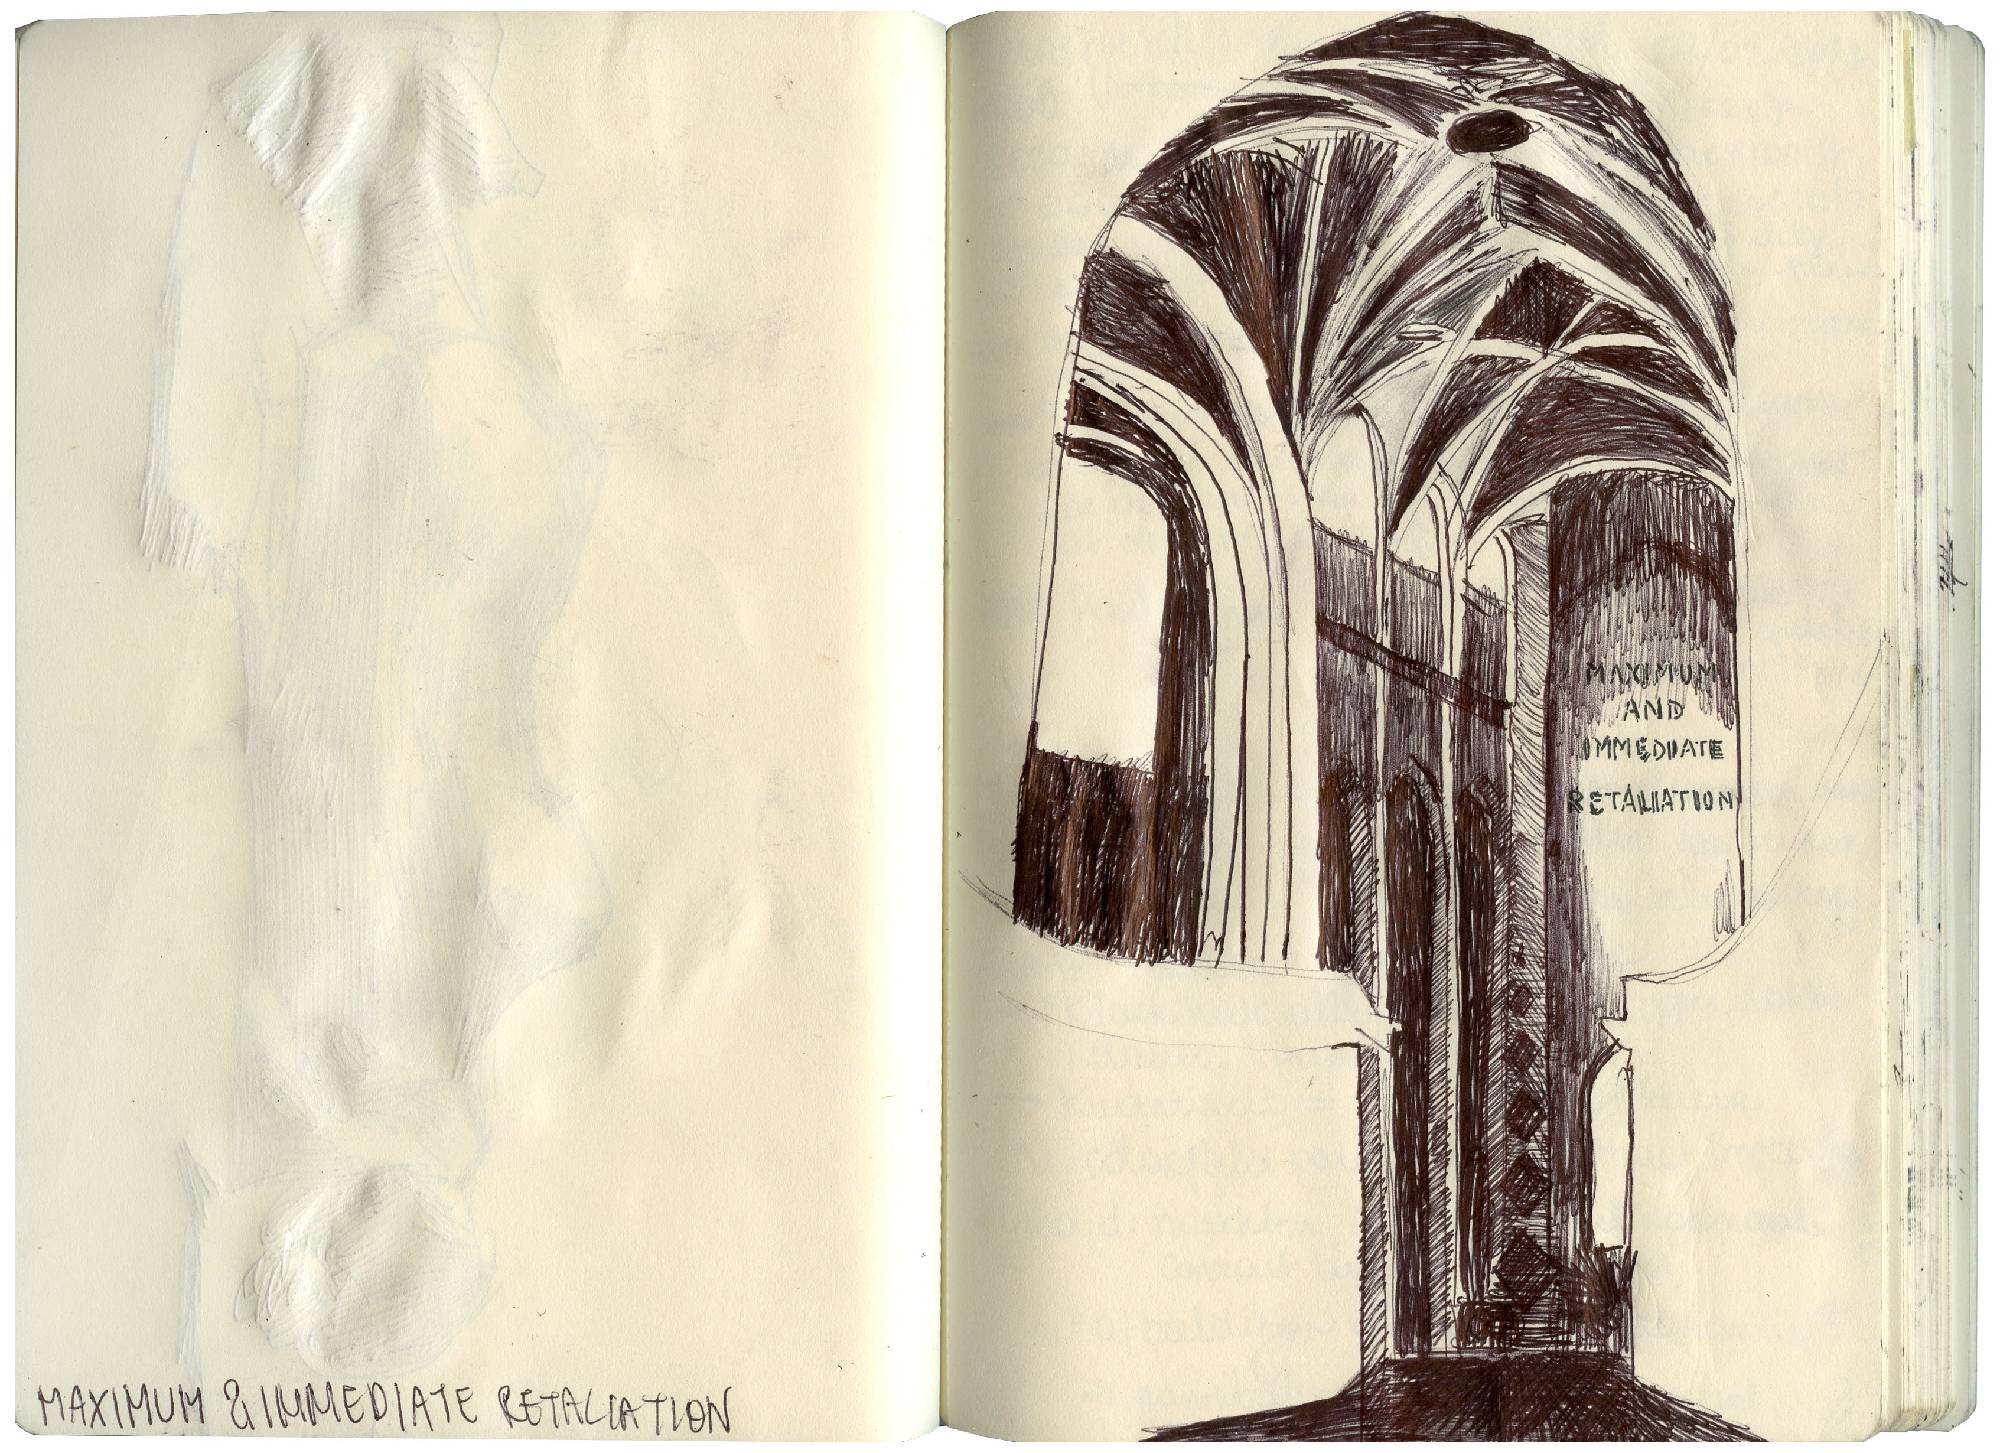 MAXIMUM & IMMEDIATE RETALIATION
MAXIMUM
AND
IMMEDIATE
RETALIATION